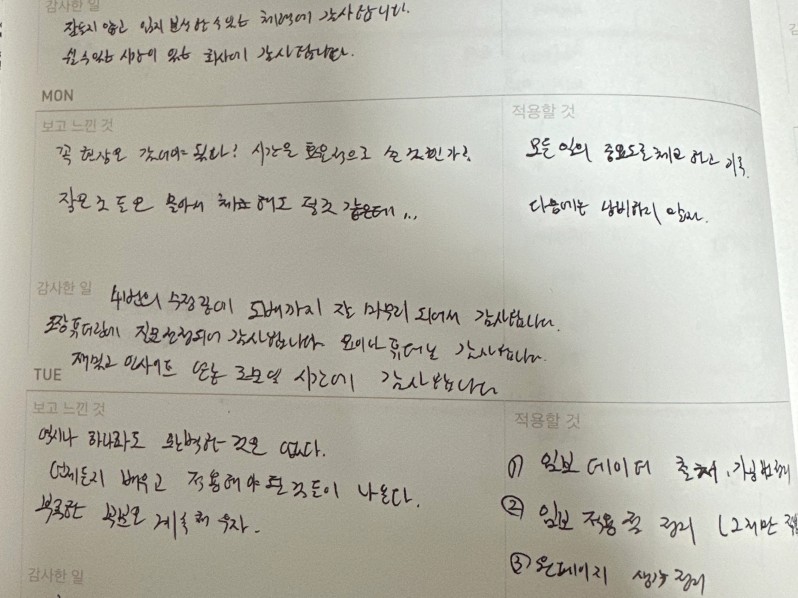 감사한 일
잠들지 않고 일지 분석할 수 있는 체력에 감사합니다.
쉴 수 있는 시간이 있는 회사에 감사합니다.
MON
보고 느낀 것
꼭 현장은 갔어야 됐나? 시간을 효율적으로 쓴 것인가?
잘 모은 것 들은 몰아서 체크해도 될 것 같은데...
적용할 것
모든 일의 중요도를 체크하고 기록.
다음에는 낭비하지 말자.
감사한 일
4번의 수정 끝에 도배까지 잘 마무리 되어서 감사합니다.
선정되어 감사합니다 감사합니다.
재밌고 인사이트 시간에 감사합니다
TUE
보고 느낀 것
역시나 하나라도 완벽한 것은 없다.
언제든지 배우고 적용해야 될 것들이 나온다.
부족한 부분은 계속 해 두자.
적용할 것
① 임보 데이터 출처, 가공 방법
② 임보 적용할 것 정리 (그리만
③ 원페이지 생각 정리
감사한 일